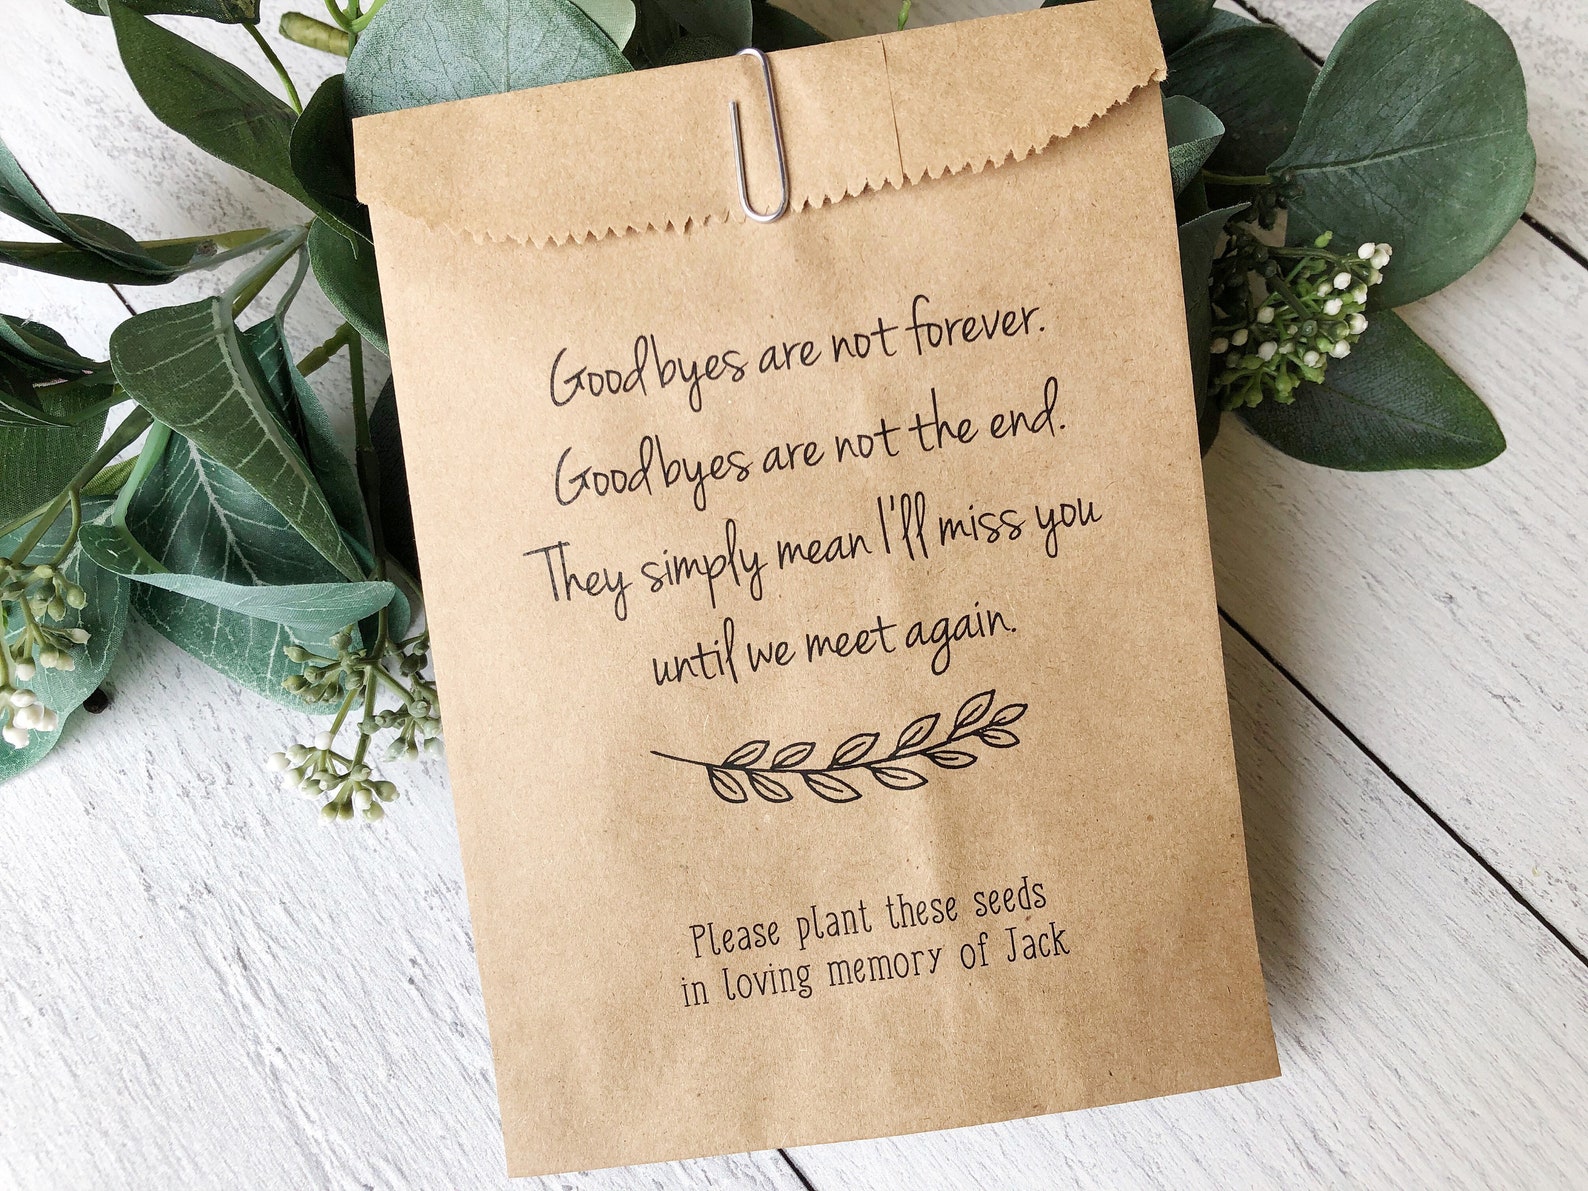 Goodbyes are not forever.
Goodbyes are not the end.
They simply mean I'll miss you
until we meet again.
Please plant these seeds
in loving memory of Jack